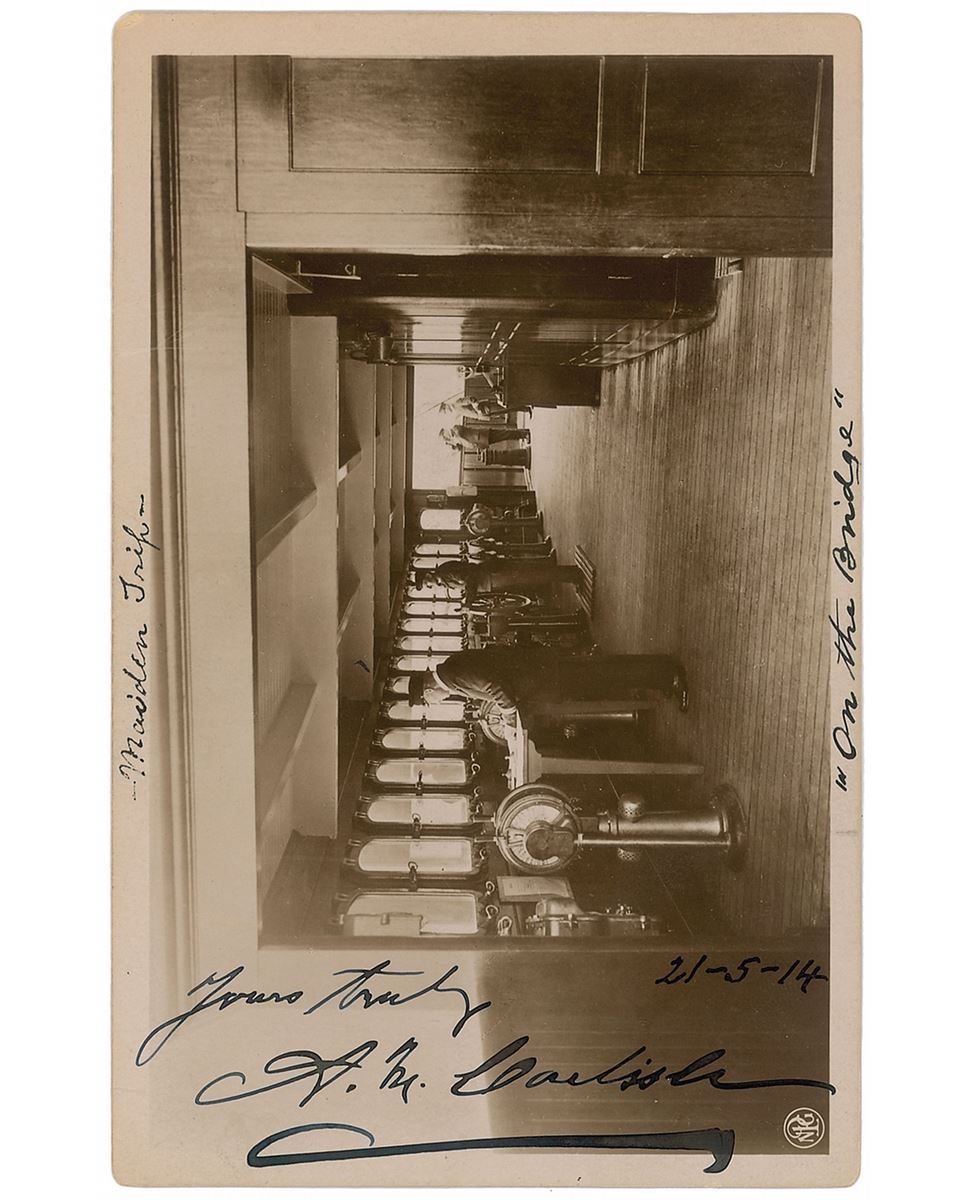 –Maiden Trip–
"On the Bridge"
Yours truly
A. M. Carlisle
21-5-14
NPG